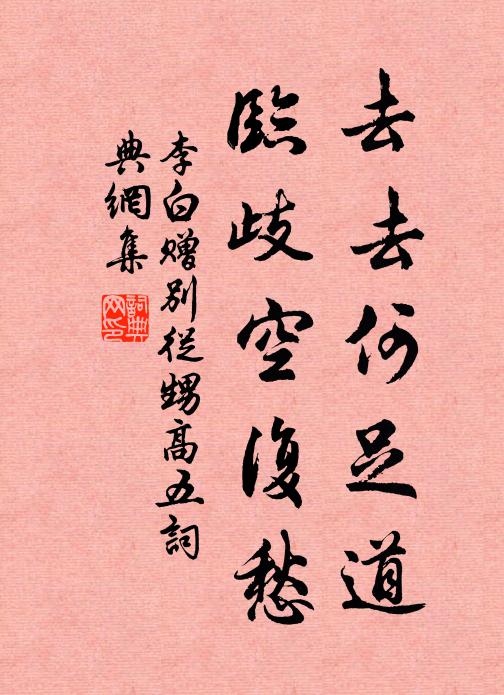 去去何足道
臨歧空復愁
李白贈別從甥高五詞
典網集
詞典網印